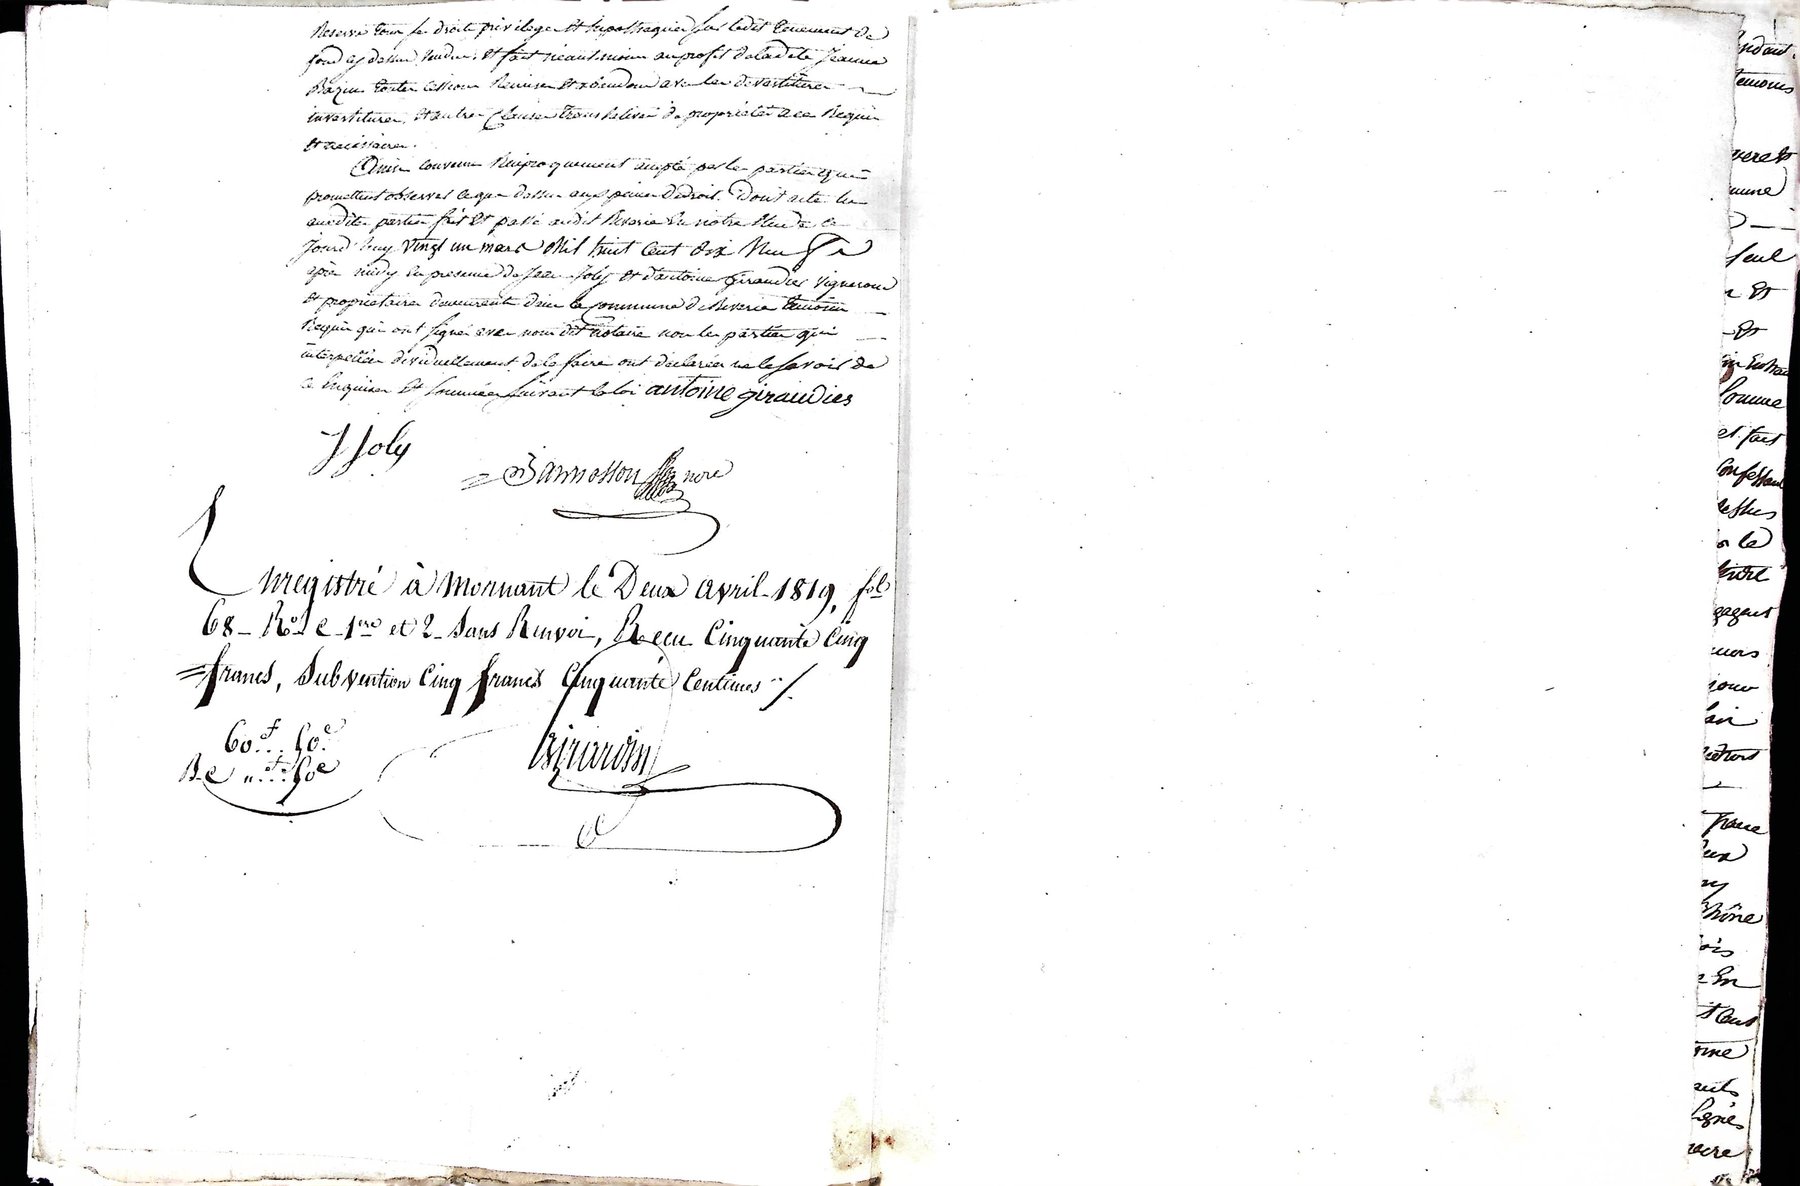 Reserve tous ses droits privilege et hypothéques sur ledit tenement de
fond cy dessus vendu. Et fait néantmoins au profit de ladite Jeanne
Bazin toutes cession Remises et abandon avec les devestitures
investitures, et autres clauses translatives de propriétés a ce Requis
et necessaires.
Ainsi convenu Réciproquement accepté par les parties qui
promettent observer ce que dessus aux peines de droit. Dont acte
susdites parties fait et passé audit Riverie en notre Etude ce
jourd'huy vingt un mars Mil huit cent dix Neuf
après midy en presence de Jean Joly et d'antoine giraudier vignerons
et proprietaires demeurents dans la commune de Riverie temoins
Requis qui ont signé avec nous dit notaire non les parties qui
interpellées dividuellement de le faire ont déclarées ne le savoir de
ce Enquises et sommées suivant la loi antoine giraudier
J Joly
Bannosson nore
Enregistré à Mornant le Deux avril 1819, fol.
68 Ro. C 1ere et 2 Sans Renvoi, Reçu Cinquante Cinq
francs, Subvention Cinq francs Cinquante Centimes ./.
60f. 50c
50c
Girardin
endant
temoins
vere et
mune
Seul
r Et
Et
Somme
et fait
Confessant
dessus
la
gagent
jour
trois
Rhône
En
t Cent
signés